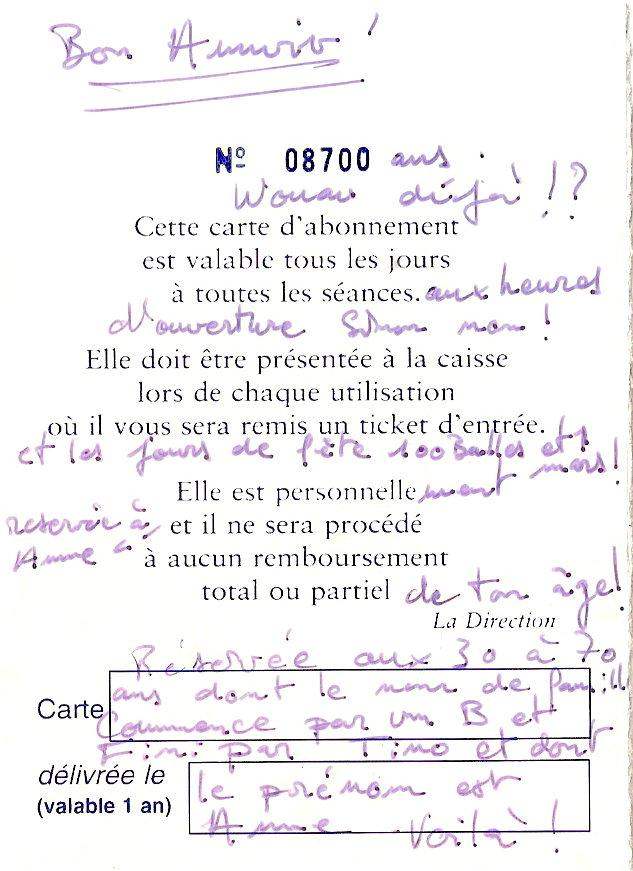 Bon Anniv !
Nº 08700 ans
Wouaw déjà !?
Cette carte d'abonnement
est valable tous les jours
à toutes les séances. aux heures
d'ouverture Sinon non !
Elle doit être présentée à la caisse
lors de chaque utilisation
où il vous sera remis un ticket d'entrée.
et les jours de fête 100 Balles et 1 mars !
Elle est personnellement
réservée à et il ne sera procédé
Anne à aucun remboursement
total ou partiel de ton âge !
La Direction
Réservée aux 30 à 70
Carte ans dont le nom de famille
Commence par un B et
Fini par Tino et dont
délivrée le le prénom est
(valable 1 an) Anne Voilà !